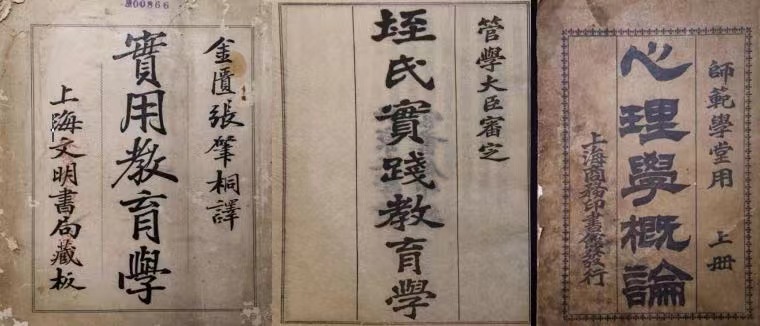 00866
金匱張肇桐譯
實用教育學
上海文明書局藏板
管學大臣審定
垤氏實踐教育學
師範學堂用 上册
心理學概論
上海商務印書館發行